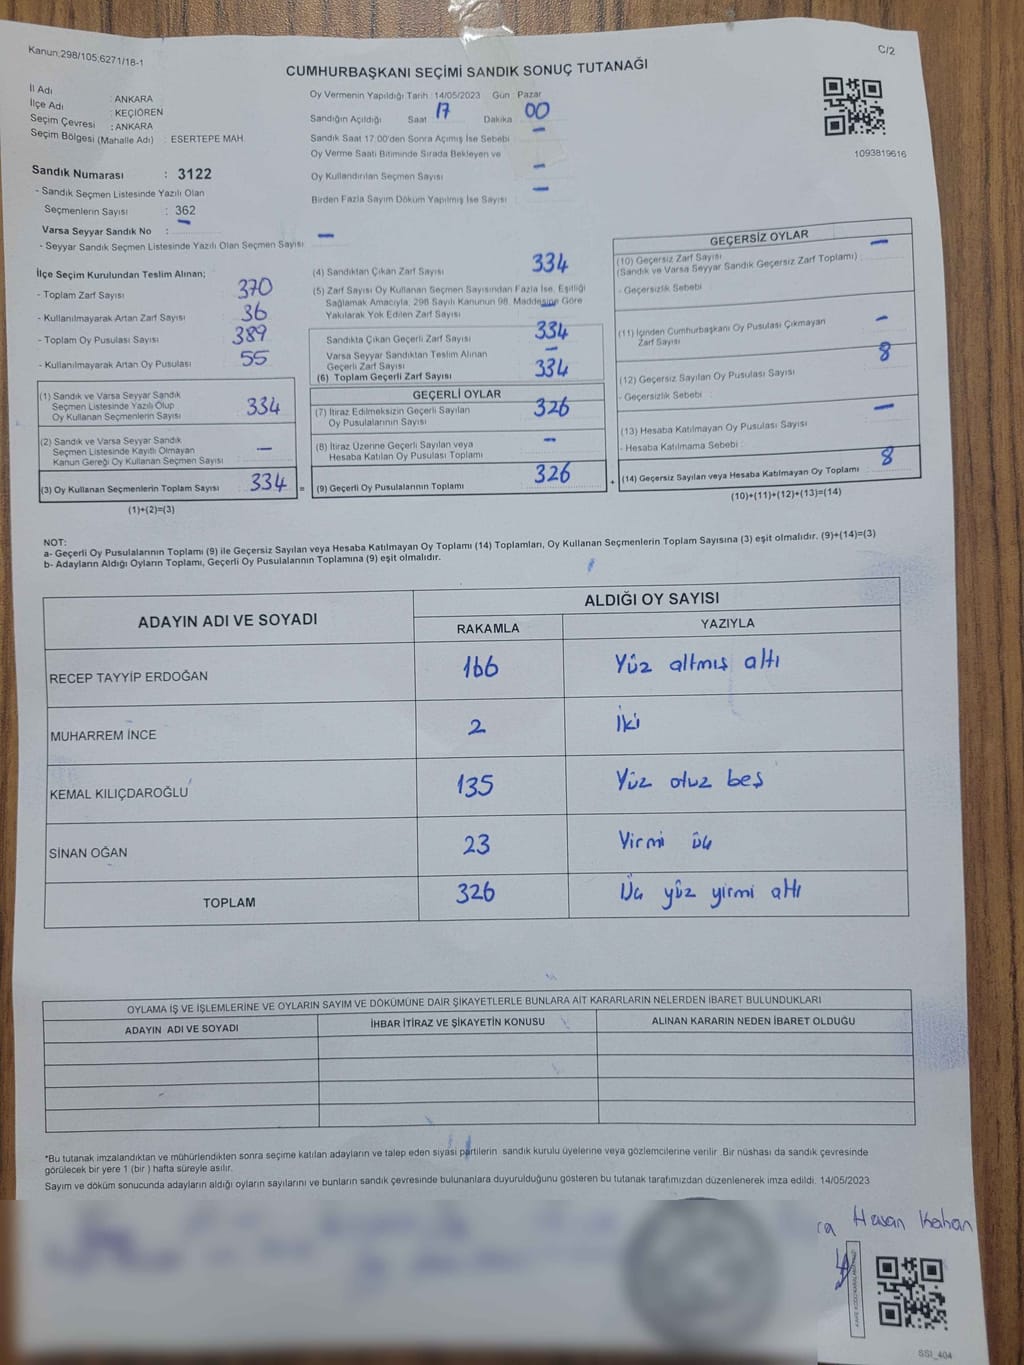 Kanun;298/105;6271/18-1
C/2
CUMHURBAŞKANI SEÇİMİ SANDIK SONUÇ TUTANAĞI
İl Adı : ANKARA
İlçe Adı : KEÇİÖREN
Seçim Çevresi : ANKARA
Seçim Bölgesi (Mahalle Adı) : ESERTEPE MAH
Oy Vermenin Yapıldığı Tarih : 14/05/2023 Gün : Pazar
Sandığın Açıldığı Saat 17 Dakika 00
Sandık Saat 17:00'den Sonra Açımış İse Sebebi : –
Oy Verme Saati Bitiminde Sırada Bekleyen ve
Oy Kullandırılan Seçmen Sayısı –
Birden Fazla Sayım Döküm Yapılmış İse Sayısı : –
1093819616
Sandık Numarası : 3122
- Sandık Seçmen Listesinde Yazılı Olan
Seçmenlerin Sayısı : 362
Varsa Seyyar Sandık No : –
- Seyyar Sandık Seçmen Listesinde Yazılı Olan Seçmen Sayısı : –
İlçe Seçim Kurulundan Teslim Alınan;
- Toplam Zarf Sayısı 370
- Kullanılmayarak Artan Zarf Sayısı 36
- Toplam Oy Pusulası Sayısı 389
- Kullanılmayarak Artan Oy Pusulası 55
(1) Sandık ve Varsa Seyyar Sandık
Seçmen Listesinde Yazılı Olup
Oy Kullanan Seçmenlerin Sayısı 334
(2) Sandık ve Varsa Seyyar Sandık
Seçmen Listesinde Kayıtlı Olmayan
Kanun Gereği Oy Kullanan Seçmen Sayısı –
(3) Oy Kullanan Seçmenlerin Toplam Sayısı 334 =
(1)+(2)=(3)
(4) Sandıktan Çıkan Zarf Sayısı 334
(5) Zarf Sayısı Oy Kullanan Seçmen Sayısından Fazla İse, Eşitliği
Sağlamak Amacıyla, 298 Sayılı Kanunun 98. Maddesine Göre
Yakılarak Yok Edilen Zarf Sayısı –
Sandıkta Çıkan Geçerli Zarf Sayısı 334
Varsa Seyyar Sandıktan Teslim Alınan
Geçerli Zarf Sayısı –
(6) Toplam Geçerli Zarf Sayısı 334
GEÇERLİ OYLAR
(7) İtiraz Edilmeksizin Geçerli Sayılan
Oy Pusulalarının Sayısı 326
(8) İtiraz Üzerine Geçerli Sayılan veya
Hesaba Katılan Oy Pusulası Toplamı –
(9) Geçerli Oy Pusulalarının Toplamı 326 +
GEÇERSİZ OYLAR
(10) Geçersiz Zarf Sayısı –
(Sandık ve Varsa Seyyar Sandık Geçersiz Zarf Toplamı) :
- Geçersizlik Sebebi
(11) İçinden Cumhurbaşkanı Oy Pusulası Çıkmayan –
Zarf Sayısı
(12) Geçersiz Sayılan Oy Pusulası Sayısı 8
- Geçersizlik Sebebi :
(13) Hesaba Katılmayan Oy Pusulası Sayısı –
- Hesaba Katılmama Sebebi :
(14) Geçersiz Sayılan veya Hesaba Katılmayan Oy Toplamı 8
(10)+(11)+(12)+(13)=(14)
NOT:
a- Geçerli Oy Pusulalarının Toplamı (9) ile Geçersiz Sayılan veya Hesaba Katılmayan Oy Toplamı (14) Toplamları, Oy Kullanan Seçmenlerin Toplam Sayısına (3) eşit olmalıdır. (9)+(14)=(3)
b- Adayların Aldığı Oyların Toplamı, Geçerli Oy Pusulalarının Toplamına (9) eşit olmalıdır.
ADAYIN ADI VE SOYADI ALDIĞI OY SAYISI
RAKAMLA YAZIYLA
RECEP TAYYİP ERDOĞAN 166 Yüz altmış altı
MUHARREM İNCE 2 İki
KEMAL KILIÇDAROĞLU 135 Yüz otuz beş
SİNAN OĞAN 23 Yirmi üç
TOPLAM 326 Üç yüz yirmi altı
OYLAMA İŞ VE İŞLEMLERİNE VE OYLARIN SAYIM VE DÖKÜMÜNE DAİR ŞİKAYETLERLE BUNLARA AİT KARARLARIN NELERDEN İBARET BULUNDUKLARI
ADAYIN ADI VE SOYADI İHBAR İTİRAZ VE ŞİKAYETİN KONUSU ALINAN KARARIN NEDEN İBARET OLDUĞU
*Bu tutanak imzalandıktan ve mühürlendikten sonra seçime katılan adayların ve talep eden siyasi partilerin sandık kurulu üyelerine veya gözlemcilerine verilir Bir nüshası da sandık çevresinde
görülecek bir yere 1 (bir ) hafta süreyle asılır.
Sayım ve döküm sonucunda adayların aldığı oyların sayılarını ve bunların sandık çevresinde bulunanlara duyurulduğunu gösteren bu tutanak tarafımızdan düzenlenerek imza edildi. 14/05/2023
ra Hasan
SSI_404